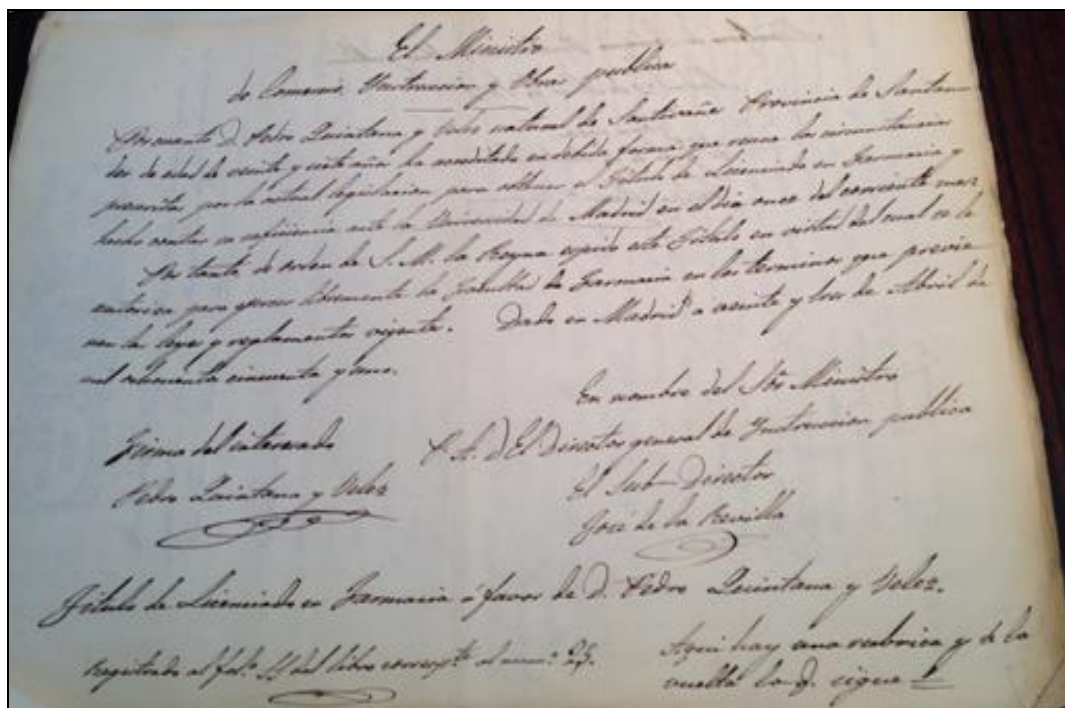 El Ministro
de Comercio, Instruccion y Obras publicas
Por cuanto D. Pedro Quintana y Velez natural de Santivañe Provincia de Santan-
der de edad de veinte y siete años ha acreditado en debida forma que reune las circunstancias
prescritas por la actual legislacion para obtener el Titulo de Licenciado en Farmacia y
hecho constar su suficiencia ante la Universidad de Madrid en el dia once del corriente mes,
Por tanto de orden de S. M. la Reyna expido este Titulo en virtud del cual se le
autoriza para ejercer libremente la Facultad de Farmacia en los terminos que previe-
nen las leyes y reglamentos vigentes. Dado en Madrid a veinte y tres de Abril de
mil ochocientos cincuenta y uno.
En nombre del Sor Ministro
Firma del interesado
P. A. D. El Director general de Instruccion publica
Pedro Quintana y Velez
El Sub-Director
José de la Revilla
Titulo de Licenciado en Farmacia á favor de D. Pedro Quintana y Velez.
Registrado al fol.º del libro correspte. al num.º 25.
Aqui hay una rubrica y de la
vuelta lo q. sigue